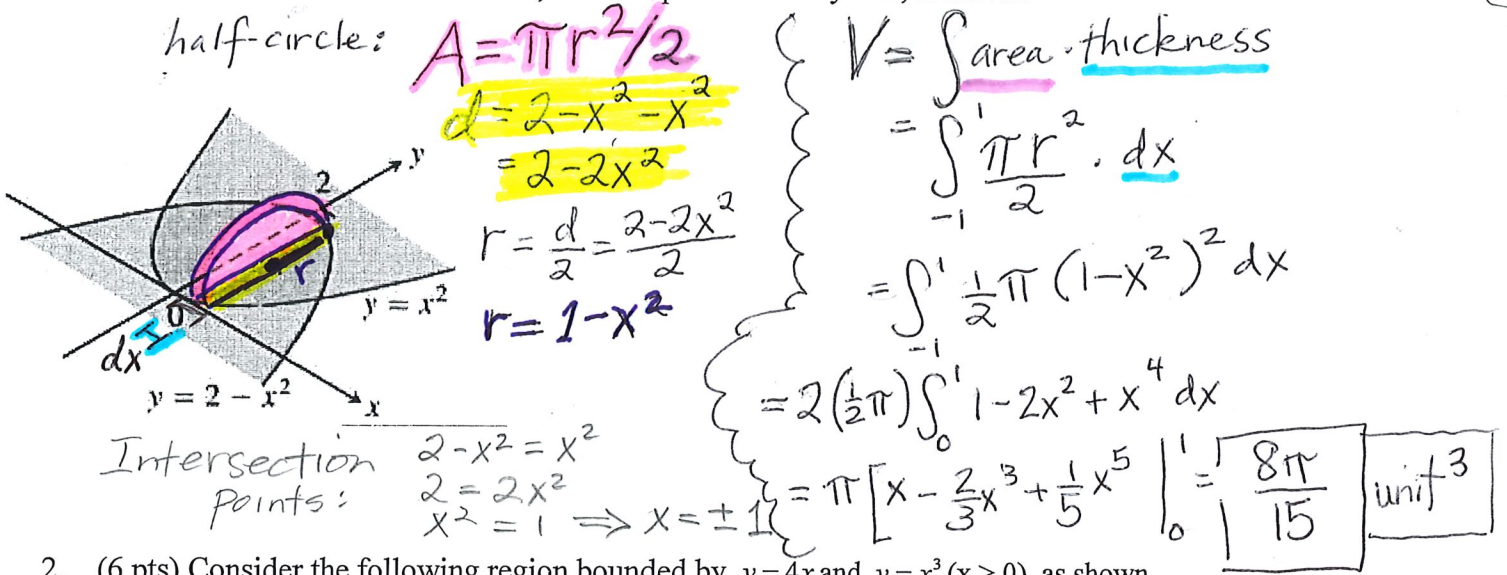 half-circle: A = πr²/2
d = 2-x²-x²
= 2-2x²
r = d/2 = (2-2x²)/2
r = 1-x²
y
2
r
y = x²
0
dx
y = 2 - x²
x
Intersection points:
2-x² = x²
2 = 2x²
x² = 1 ⇒ x = ±1
V = ∫ area · thickness
= ∫₋₁¹ πr²/2 · dx
= ∫₋₁¹ ½π (1-x²)² dx
= 2(½π) ∫₀¹ 1-2x²+x⁴ dx
= π[x - ⅔x³ + ⅕x⁵ |₀¹ = 8π/15 unit³
2. (6 pts) Consider the following region bounded by y = 4x and y = x³ (x > 0), as shown